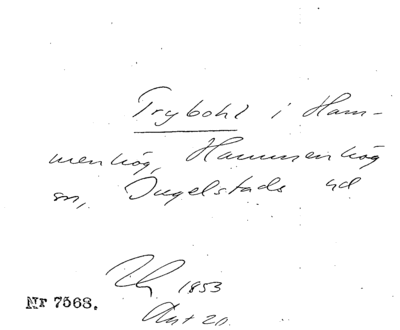 Trybohl i Ham-
menhög, Hammenhög
sn, Ingelstads hd
1853
Nr 7568.